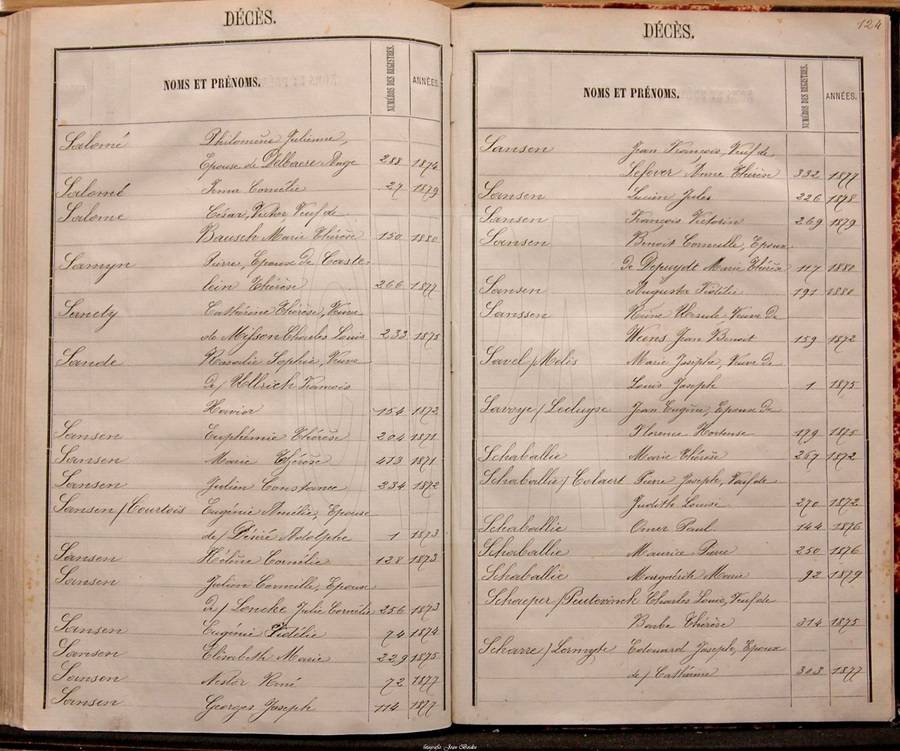 DÉCÈS.
NOMS ET PRÉNOMS. NUMÉROS DES REGISTRES. ANNÉES.
Salomé Philomène Julienne,
Epouse de Delbaere Ange 288 1874
Salomé Irma Cornélie 27 1879
Salomé César, Victor Veuf de
Bausch Marie Thérèse 150 1880
Samyn Pierre, Epoux de Caste
lein Thérèse 266 1877
Cathérine Thérèse, Veuve
de Charles Louis 233 1875
Sande Rosalie Sophie, Veuve
de François
Xavier 154 1872
Sansen Euphémie Thérèse 204 1871
Sansen Marie Thérèse 413 1871
Sansen Julien Constance 234 1872
Sansen / Courtois Eugénie Amélie, Epouse
de / Désiré Adolphe 1 1873
Sansen Hélène Cornélie 128 1873
Sansen Julien Corneille, Epoux
de / Loncke Julie Cornélie 256 1873
Sansen Eugénie Fidélie 74 1874
Sansen Elisabeth Marie 229 1875
Sansen Nestor René 72 1877
Sansen Georges Joseph 114 1877
124
DÉCÈS.
NOMS ET PRÉNOMS. NUMÉROS DES REGISTRES. ANNÉES.
Sansen Jean François, Veuf de
Lefever Anne Thérèse 332 1877
Sansen Lucien Jules 226 1878
Sansen François Victorin 269 1879
Sansen Benoit Corneille, Epoux
De Depuydt Marie Thérèse 117 1880
Sansen Augusta Fidélie 191 1880
Sanssen Veuve De
Weens Jean Benoit 159 1872
Savel / Melis Marie Josèphe, Veuve de
Louis Joseph 1 1875
Savoye / Lecluyse Jean Eugène, Epoux De
Florence Hortense 179 1875
Schaballie Marie Thérèse 267 1872
Schaballie / Colaert Pierre Joseph, Veuf de
Judith Louise 270 1872
Schaballie Omer Paul 144 1876
Schaballie Maurice Pierre 250 1876
Schaballie Marguérite Marie 92 1879
Schaeper / Charles Louis, Veuf de
Barbe Thérèse 314 1875
Scharre / Edouard Joseph, Epoux
de / Cathérine 303 1877